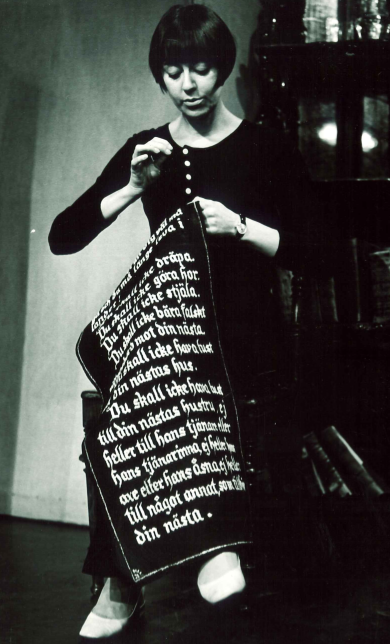 länge leva i
Du skall icke dräpa.
Du skall icke göra hor.
Du skall icke stjäla.
Du skall icke bära falskt
mot din nästa.
skall icke hava lust
din nästas hus.
Du skall icke hava lust
till din nästas hustru, ej
heller till hans tjänare eller
hans tjänarinna, ej heller
oxe eller hans åsna, ej heller
till något annat, som
din nästa.